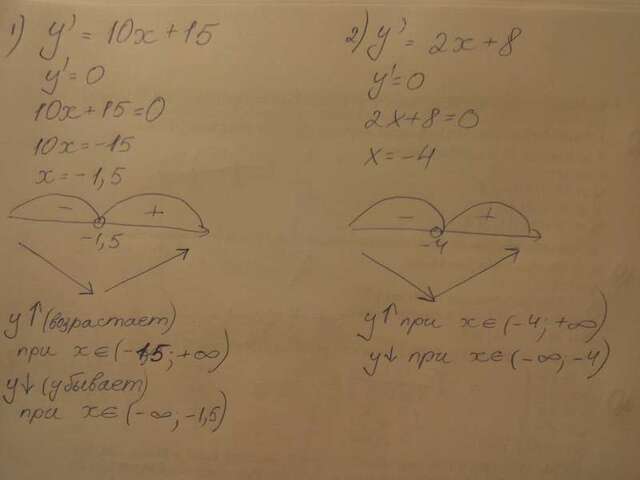 1) y' = 10x + 15
y' = 0
10x + 15 = 0
10x = -15
x = -1,5
- +
-1,5
y↑ (возрастает)
при x ∈ (-1,5; +∞)
y↓ (убывает)
при x ∈ (-∞, -1,5)
2) y' = 2x + 8
y' = 0
2x + 8 = 0
x = -4
- +
-4
y↑ при x ∈ (-4; +∞)
y↓ при x ∈ (-∞, -4)